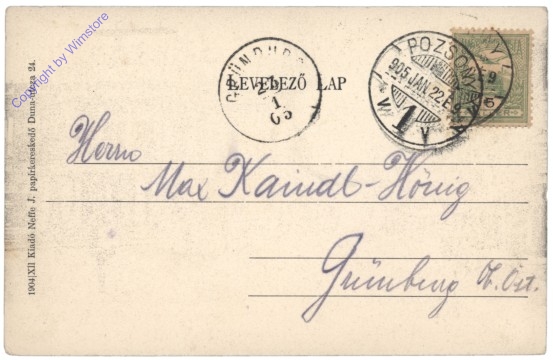 Copyright by Wimstore
1904|XII Kiadó Neffe J. papirkereskedő Duna-utcza 24.
LEVELEZŐ LAP
POZSONY
905 JAN. 22. E 9
1
1
05
Herrn
Max Kaindl-Hönig
Grünburg O. Öst.